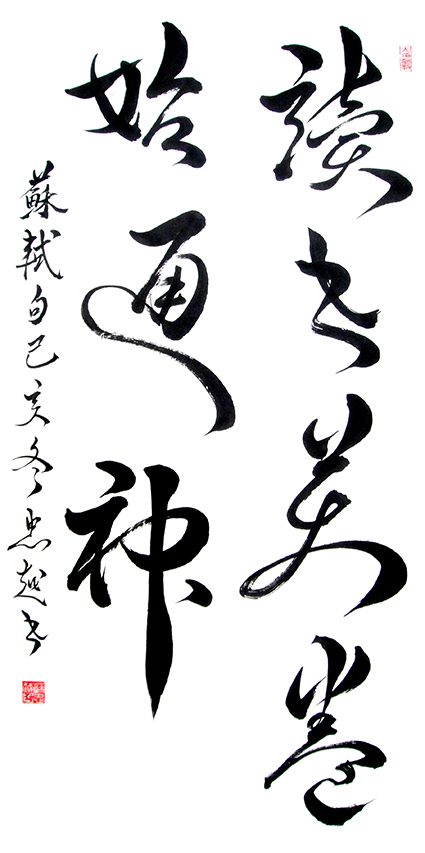 讀書萬卷
始通神
蘇軾句己亥冬忠越書